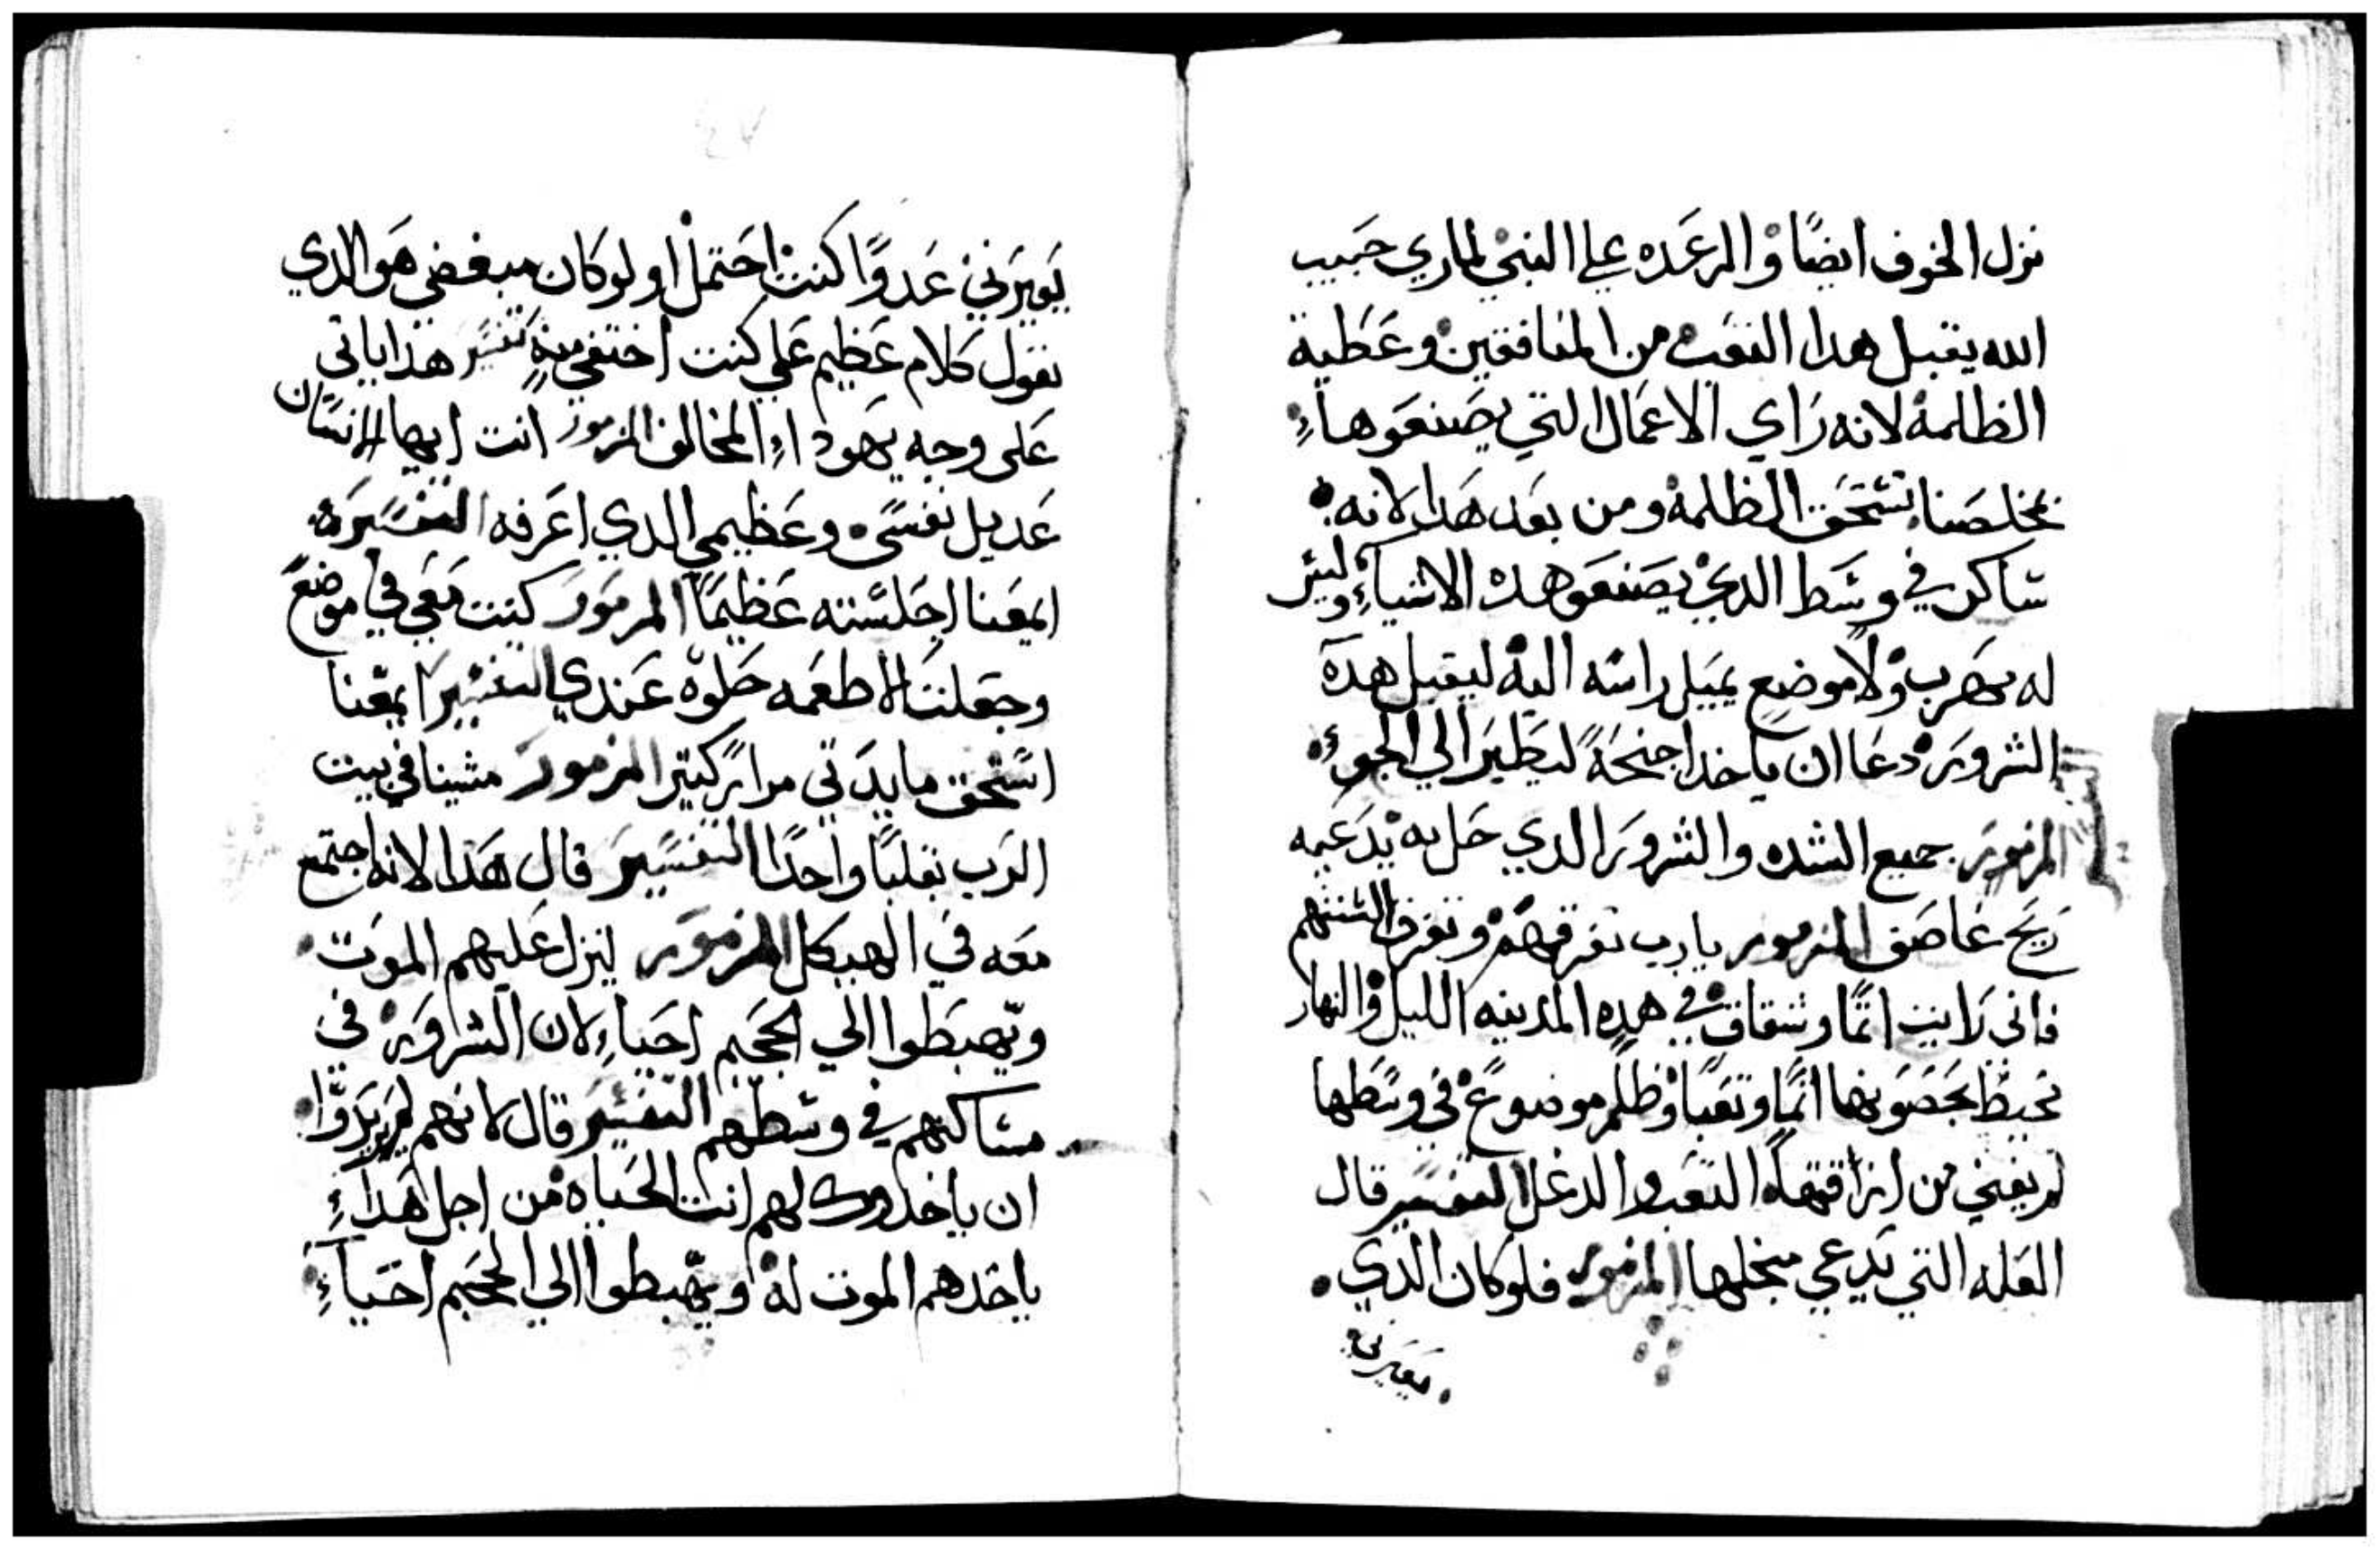 نزل الخوف ايضًا والرعده علي النبي لماري حبيب
الله يقبل هدا التعب من المنافقين وعطية
الظلمة لانه راي الاعمال التي يصنعوها
مخلصنا تستحق الظلمة ومن بعد هدا لانه
ساكن في وسط الدي يصنعو هده الاشياء وليس
له مهرب ولا موضع يميل راسه اليه ليقبل هده
الشرور دعا ان ياخد اجنحة ليطير الي الجو
المزمور جميع الشده والشرور الدي حل به يدعيه
ريح عاصف المزمور يارب تفرقهم وتفرق السنتهم
فاني رايت اتمًا وشقاق في هده المدينه الليل والنهار
تحيط بحصونها اتمًا وتعبًا وظلم موضوع في وسطها
لم يفني من ازاقتها التعب والدغل التفسير قال
العله التي يدعي منجلها المزمور فلو كان الدي
يعيرني
يعيرني عدوًا كنت احتمل او لو كان مبغضي هو الدي
يقول كلام عظيم علي كنت اختفي منه تفسير هدا ياتي
على وجه يهوداء المخالف المزمور انت ايها الانسان
عديل نفسي وعظيمي الدي اعرفه التفسير
ايمعنا اجلسته عظيمًا المزمور كنت معي في موضع
وجعلت الاطعمه حلوة عندي التفسير ايمعنا
استحق مايدتي مرارً كتير المزمور مشينا في بيت
الرب بقلبًا واحدًا التفسير قال هدا لانه اجتمع
معه في الهيكل المزمور لينزل عليهم الموت
ويهبطوا الي الجحيم احياء لان الشرور في
مساكنهم في وسطهم التفسير قال لانهم لم يريدوا
ان ياخدوك لهم انت الحياه من اجل هداء
ياخدهم الموت له ويهبطوا الي الجحيم احياء